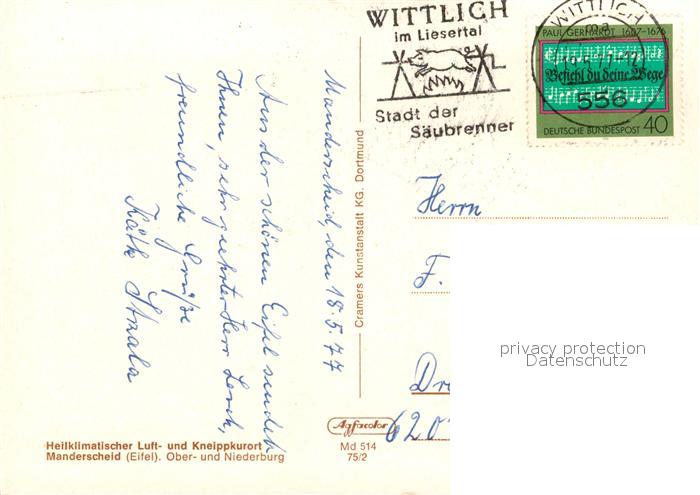 WITTLICH
im Liesertal
Stadt der
Säubrenner
WITTLICH
556
PAUL GERHARDT 1607-1676
Befiehl du deine Wege
DEUTSCHE BUNDESPOST 40
Manderscheid, den 18.5.77
Aus der schönen Eifel sendet
Ihnen, sehr geehrter Herr
freundliche Grüße
Käthe
Cramers Kunstanstalt KG. Dortmund
Herrn
F.
Dr
620
privacy protection
Datenschutz
Agfacolor
Md 514
75/2
Heilklimatischer Luft- und Kneippkurort
Manderscheid (Eifel). Ober- und Niederburg